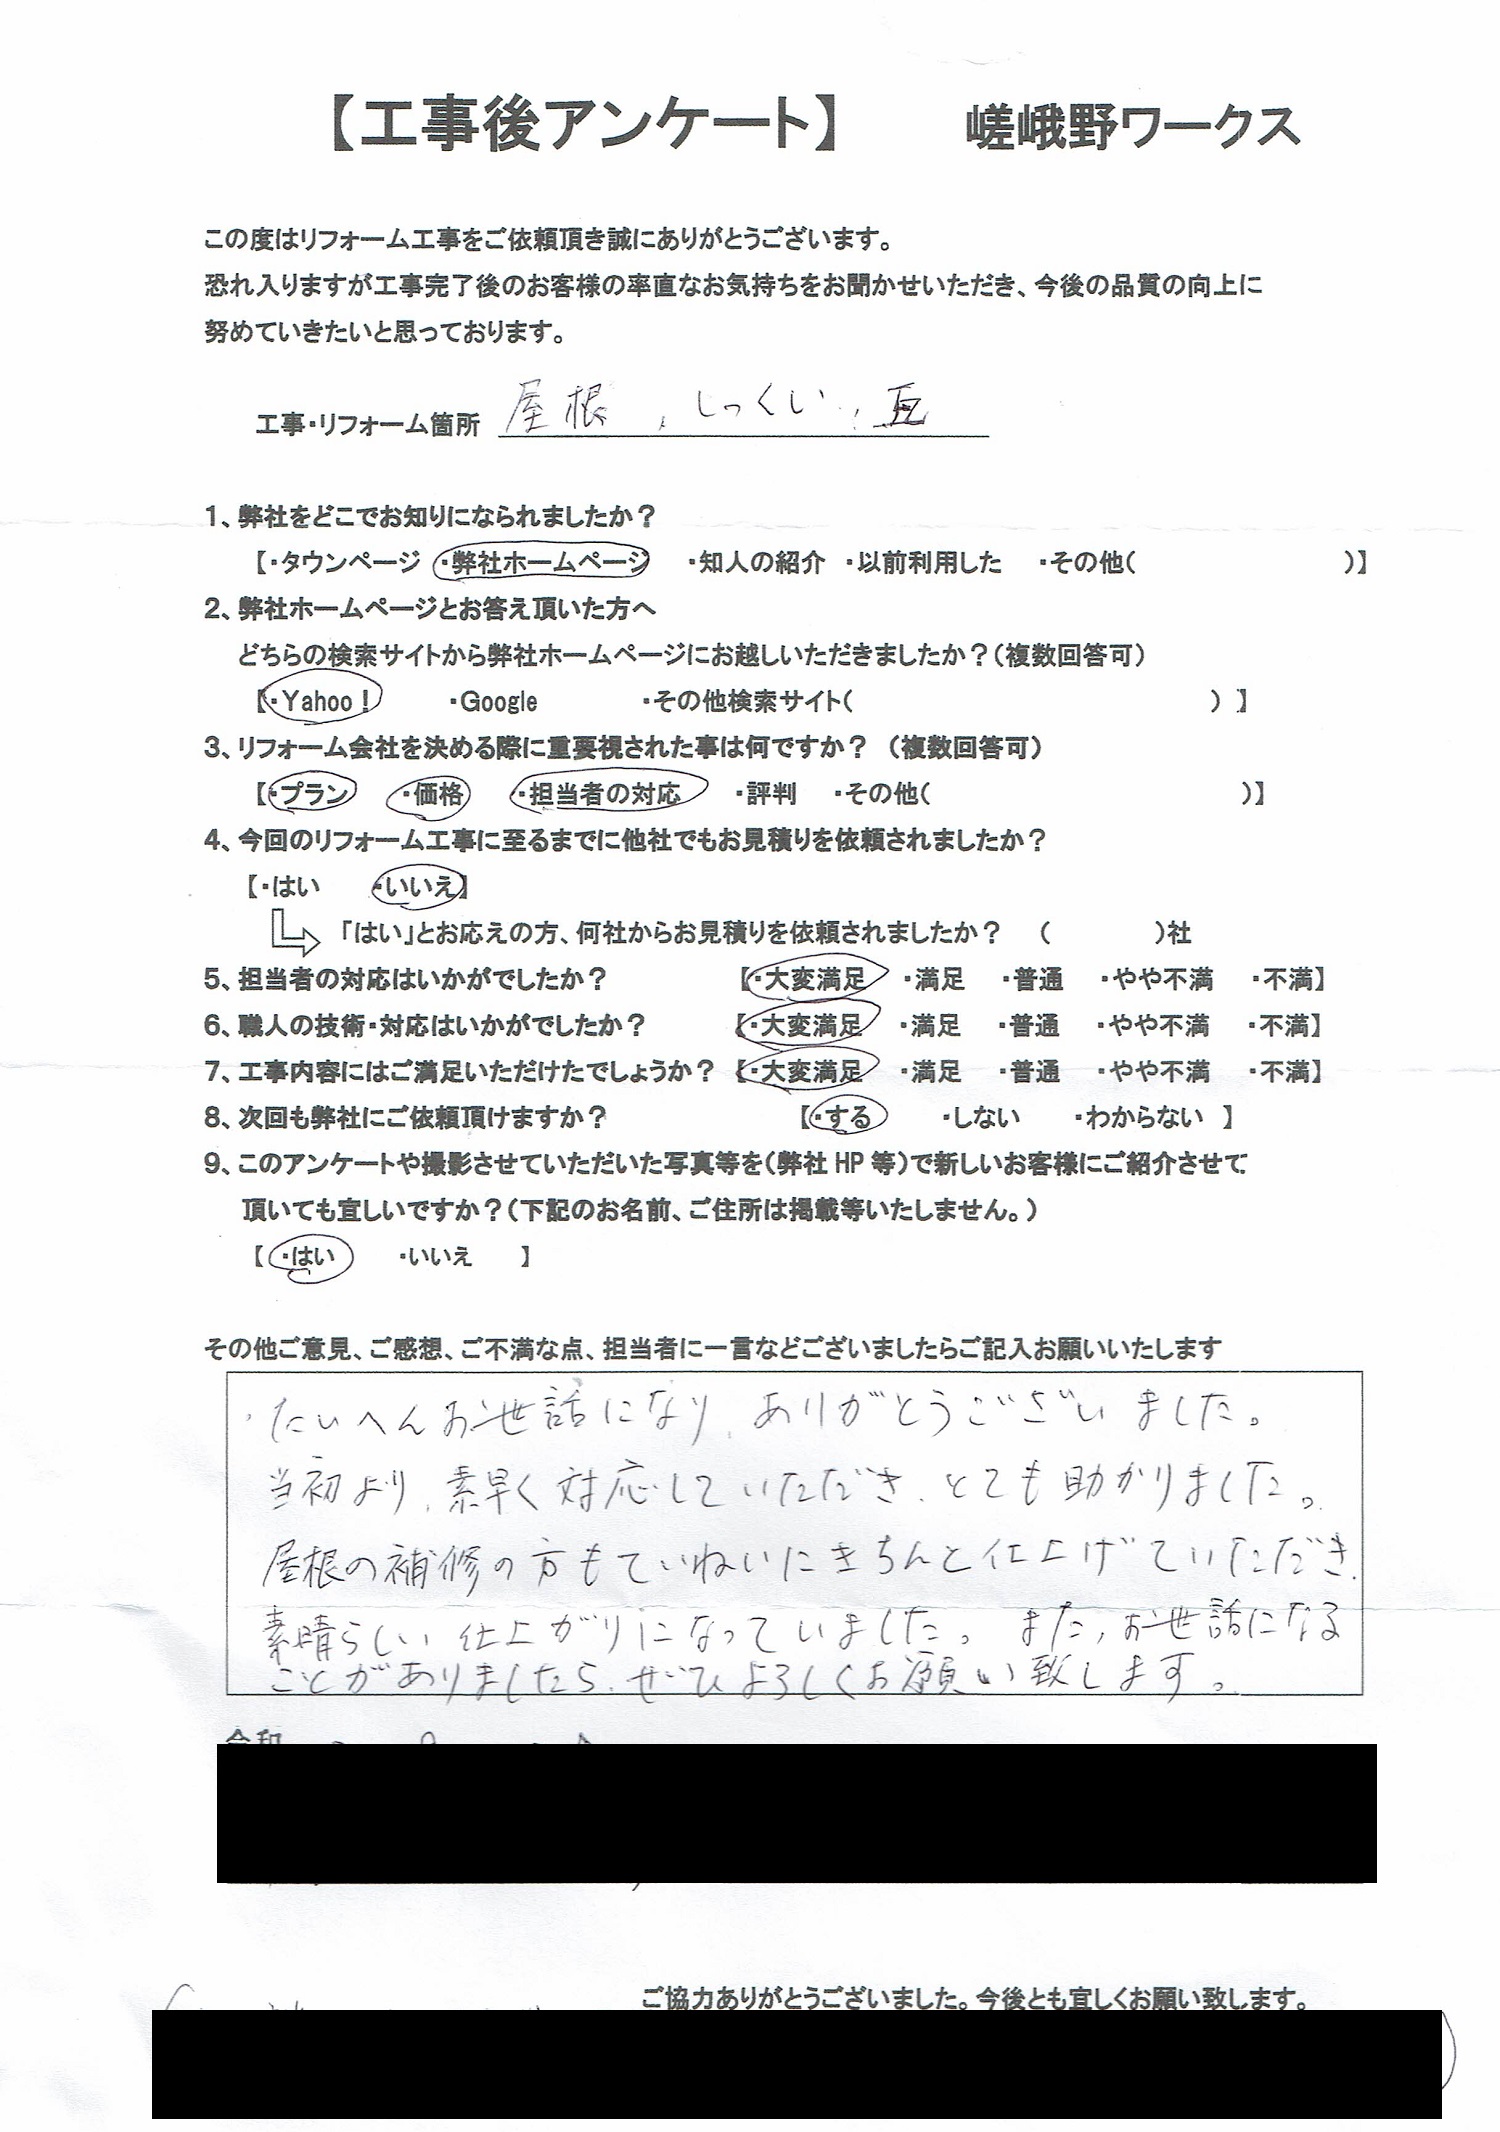 【工事後アンケート】 嵯峨野ワークス
この度はリフォーム工事をご依頼頂き誠にありがとうございます。
恐れ入りますが工事完了後のお客様の率直なお気持ちをお聞かせいただき、今後の品質の向上に
努めていきたいと思っております。
工事・リフォーム箇所 屋根、しっくい、瓦
1、弊社をどこでお知りになられましたか？
【・タウンページ ・弊社ホームページ ・知人の紹介 ・以前利用した ・その他( )】
2、弊社ホームページとお答え頂いた方へ
どちらの検索サイトから弊社ホームページにお越しいただきましたか？(複数回答可)
【・Yahoo！ ・Google ・その他検索サイト( ) 】
3、リフォーム会社を決める際に重要視された事は何ですか？ (複数回答可)
【・プラン ・価格 ・担当者の対応 ・評判 ・その他( )】
4、今回のリフォーム工事に至るまでに他社でもお見積りを依頼されましたか？
【・はい ・いいえ】
「はい」とお応えの方、何社からお見積りを依頼されましたか？ ( )社
5、担当者の対応はいかがでしたか？ 【・大変満足 ・満足 ・普通 ・やや不満 ・不満】
6、職人の技術・対応はいかがでしたか？ 【・大変満足 ・満足 ・普通 ・やや不満 ・不満】
7、工事内容にはご満足いただけたでしょうか？ 【・大変満足 ・満足 ・普通 ・やや不満 ・不満】
8、次回も弊社にご依頼頂けますか？ 【・する ・しない ・わからない 】
9、このアンケートや撮影させていただいた写真等を(弊社 HP 等)で新しいお客様にご紹介させて
頂いても宜しいですか？(下記のお名前、ご住所は掲載等いたしません。)
【 ・はい ・いいえ 】
その他ご意見、ご感想、ご不満な点、担当者に一言などございましたらご記入お願いいたします
・たいへんお世話になり、ありがとうございました。
当初より、素早く対応していただき、とても助かりました。
屋根の補修の方もていねいにきちんと仕上げていただき、
素晴らしい仕上がりになっていました。また、お世話になる
ことがありましたら、ぜひよろしくお願い致します。
令和
ご協力ありがとうございました。今後とも宜しくお願い致します。